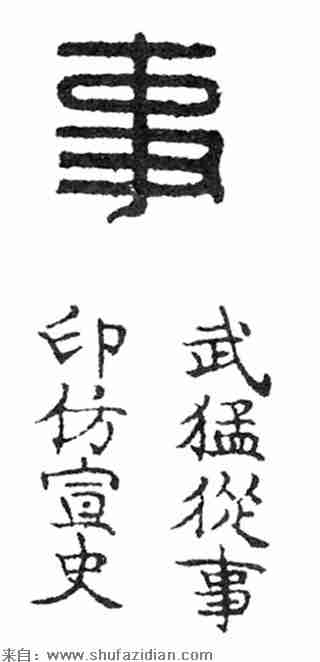 事
武猛從事
印仿宣史
来自：www.shufazidian.com